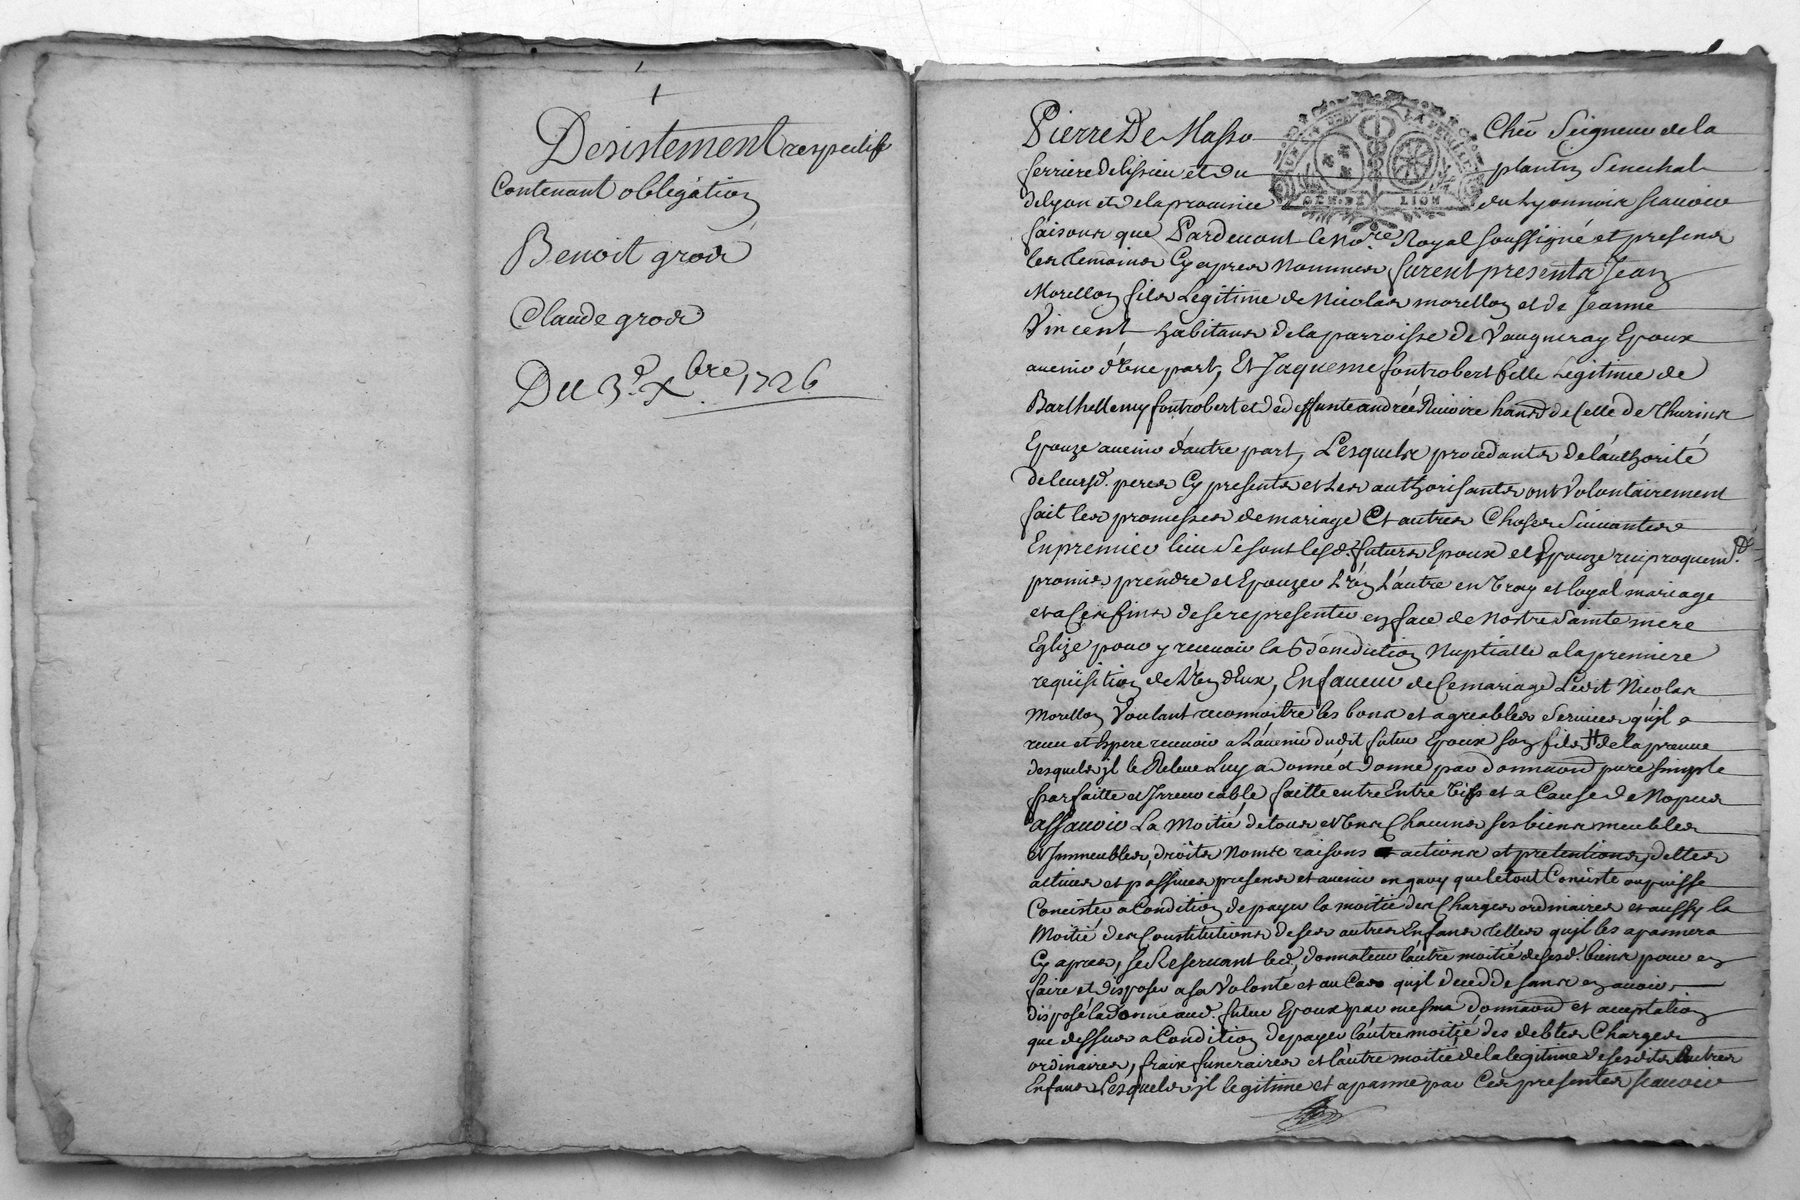 Desistement respectif
Contenant obligation
Benoit gros
Claude gros
Du 3.e Xbre 1726
Pierre De Masso Cher Seigneur de la
ferriere delissieu et du plantin Senechal
delyon et delaprouince du Lyonnois scauoir
faisons que Pardeuant le No.re Royal soussigné et presens
les temoins Cy apres Nommes furent presents Jean
Morellon fils Legitime de Nicolas morellon et de Jeanne
Vincent habitans de la parroisse de Vaugneray Epoux
auenir d'Vne part, Et Jaqueme fontrobert fille Legitime de
Barthellemy fontrobert et de deffunte andrée Riuoire de Celle de Thurins
Epouze auenir d'autre part, Lesquels procedants de l'authorité
de leursd. peres Cy presents et Les authorisants ont Volontairement
fait les promesses de mariage Et autres Choses Suiuantes
En premier lieu Se sont lesd. futurs Epoux et Epouze reciproquem.
promis prendre et Epouzer L'Vn L'autre en Vray et loyal mariage
et a Ces fins de se representer en face de Nostre Sainte mere
Eglize pour y receuoir la bénédiction Nuptialle a la premiere
requisition de L'Vn d'Eux, En faueur de Ce mariage Ledit Nicolas
Morellon Voulant reconnoitre les bons et agreables Seruices qu'jl a
receu et Espere receuoir a L'auenir dudit futur Epoux son fils de la preuue
desquels jl le Releue Luy a donné et donne par donnaon pure simple
parfaitte et Irreuocable faitte entre Vifs et a Cause de Nopces
assauoir La Moitié de tous et Vns Chacuns ses biens meubles
et Immeubles, droits Noms raisons actions et pretentions, dettes
actiues et passiues presens et auenir en quoy que le tout Consiste ou puisse
Concister a Condition de payer la moitié des Charges ordinaires et aussy la
Moitié des Constitutions de ses autres Enfans telles qu'jl les apannera
Cy apres, se Reseruant led. donnateur l'autre moitié de sesd. biens pour en
faire et disposer a sa Volonté et au Cas qu'jl decedde sans en auoir
disposé la donne aud. futur Epoux par mesme donnaon et aceptation
que dessus a Condition de payer l'autre moitié des debtes Charges
ordinaires, fraix funeraires et l'autre moitié de la legitime de sesdits autres
Enfans Lesquels jl legitime et apanne par Ces presentes scauoir